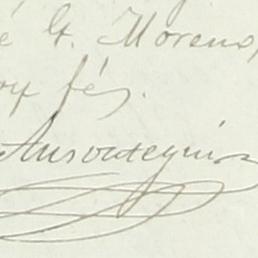 é G. Moreno,
oy fé,.
Ansoategui